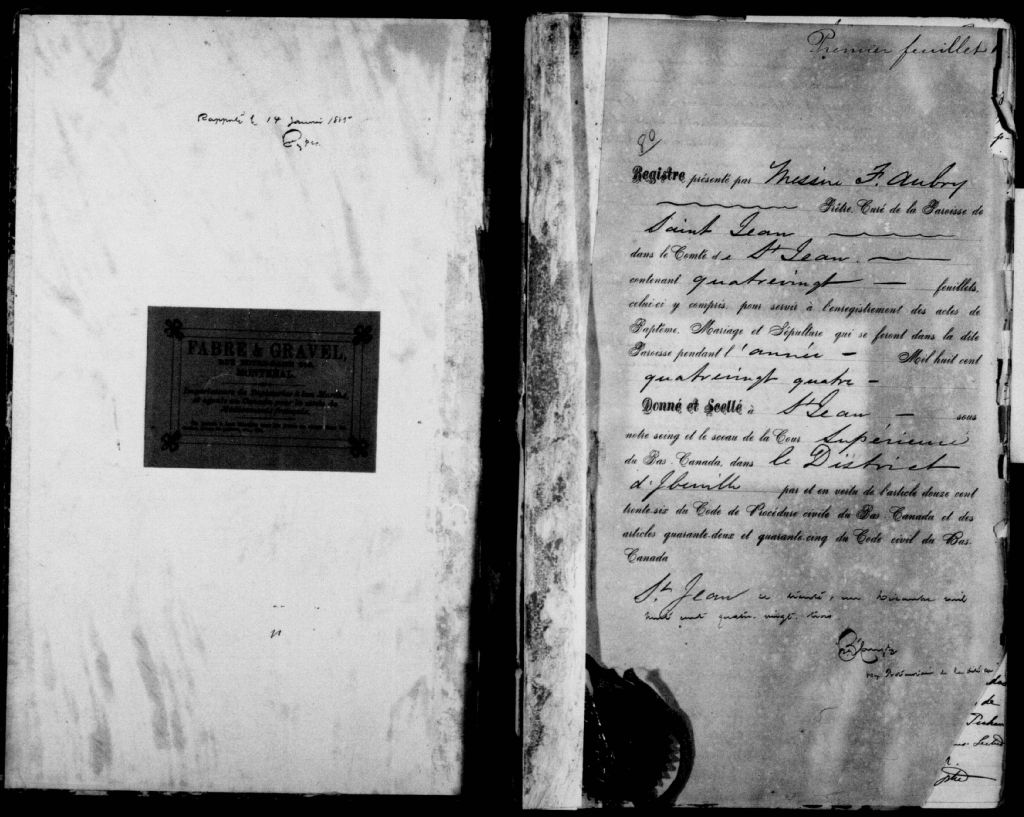 Rapporté le 14 Janvier 1885
FABRE & GRAVEL,
MONTREAL.
Premier feuillet
Registre présenté par Messire F. Aubry
Prêtre, Curé de la Paroisse de
Saint Jean
dans le Comté de St Jean.
contenant quatrevingt feuillets,
celui-ci y compris, pour servir à l'enregistrement des actes de
Baptême, Mariage et Sépulture qui se feront dans la dite
Paroisse pendant l'année Mil huit cent
quatrevingt quatre
Donné et Scellé à St Jean sous
notre seing et le sceau de la Cour Supérieure
du Bas-Canada, dans le District
d'Iberville par et en vertu de l'article douze cent
trente-six du Code de Procédure civile du Bas-Canada et des
articles quarante-deux et quarante-cinq du Code civil du Bas-
Canada
St Jean ce trente, un Décembre mil
huit cent quatre-vingt-trois
de